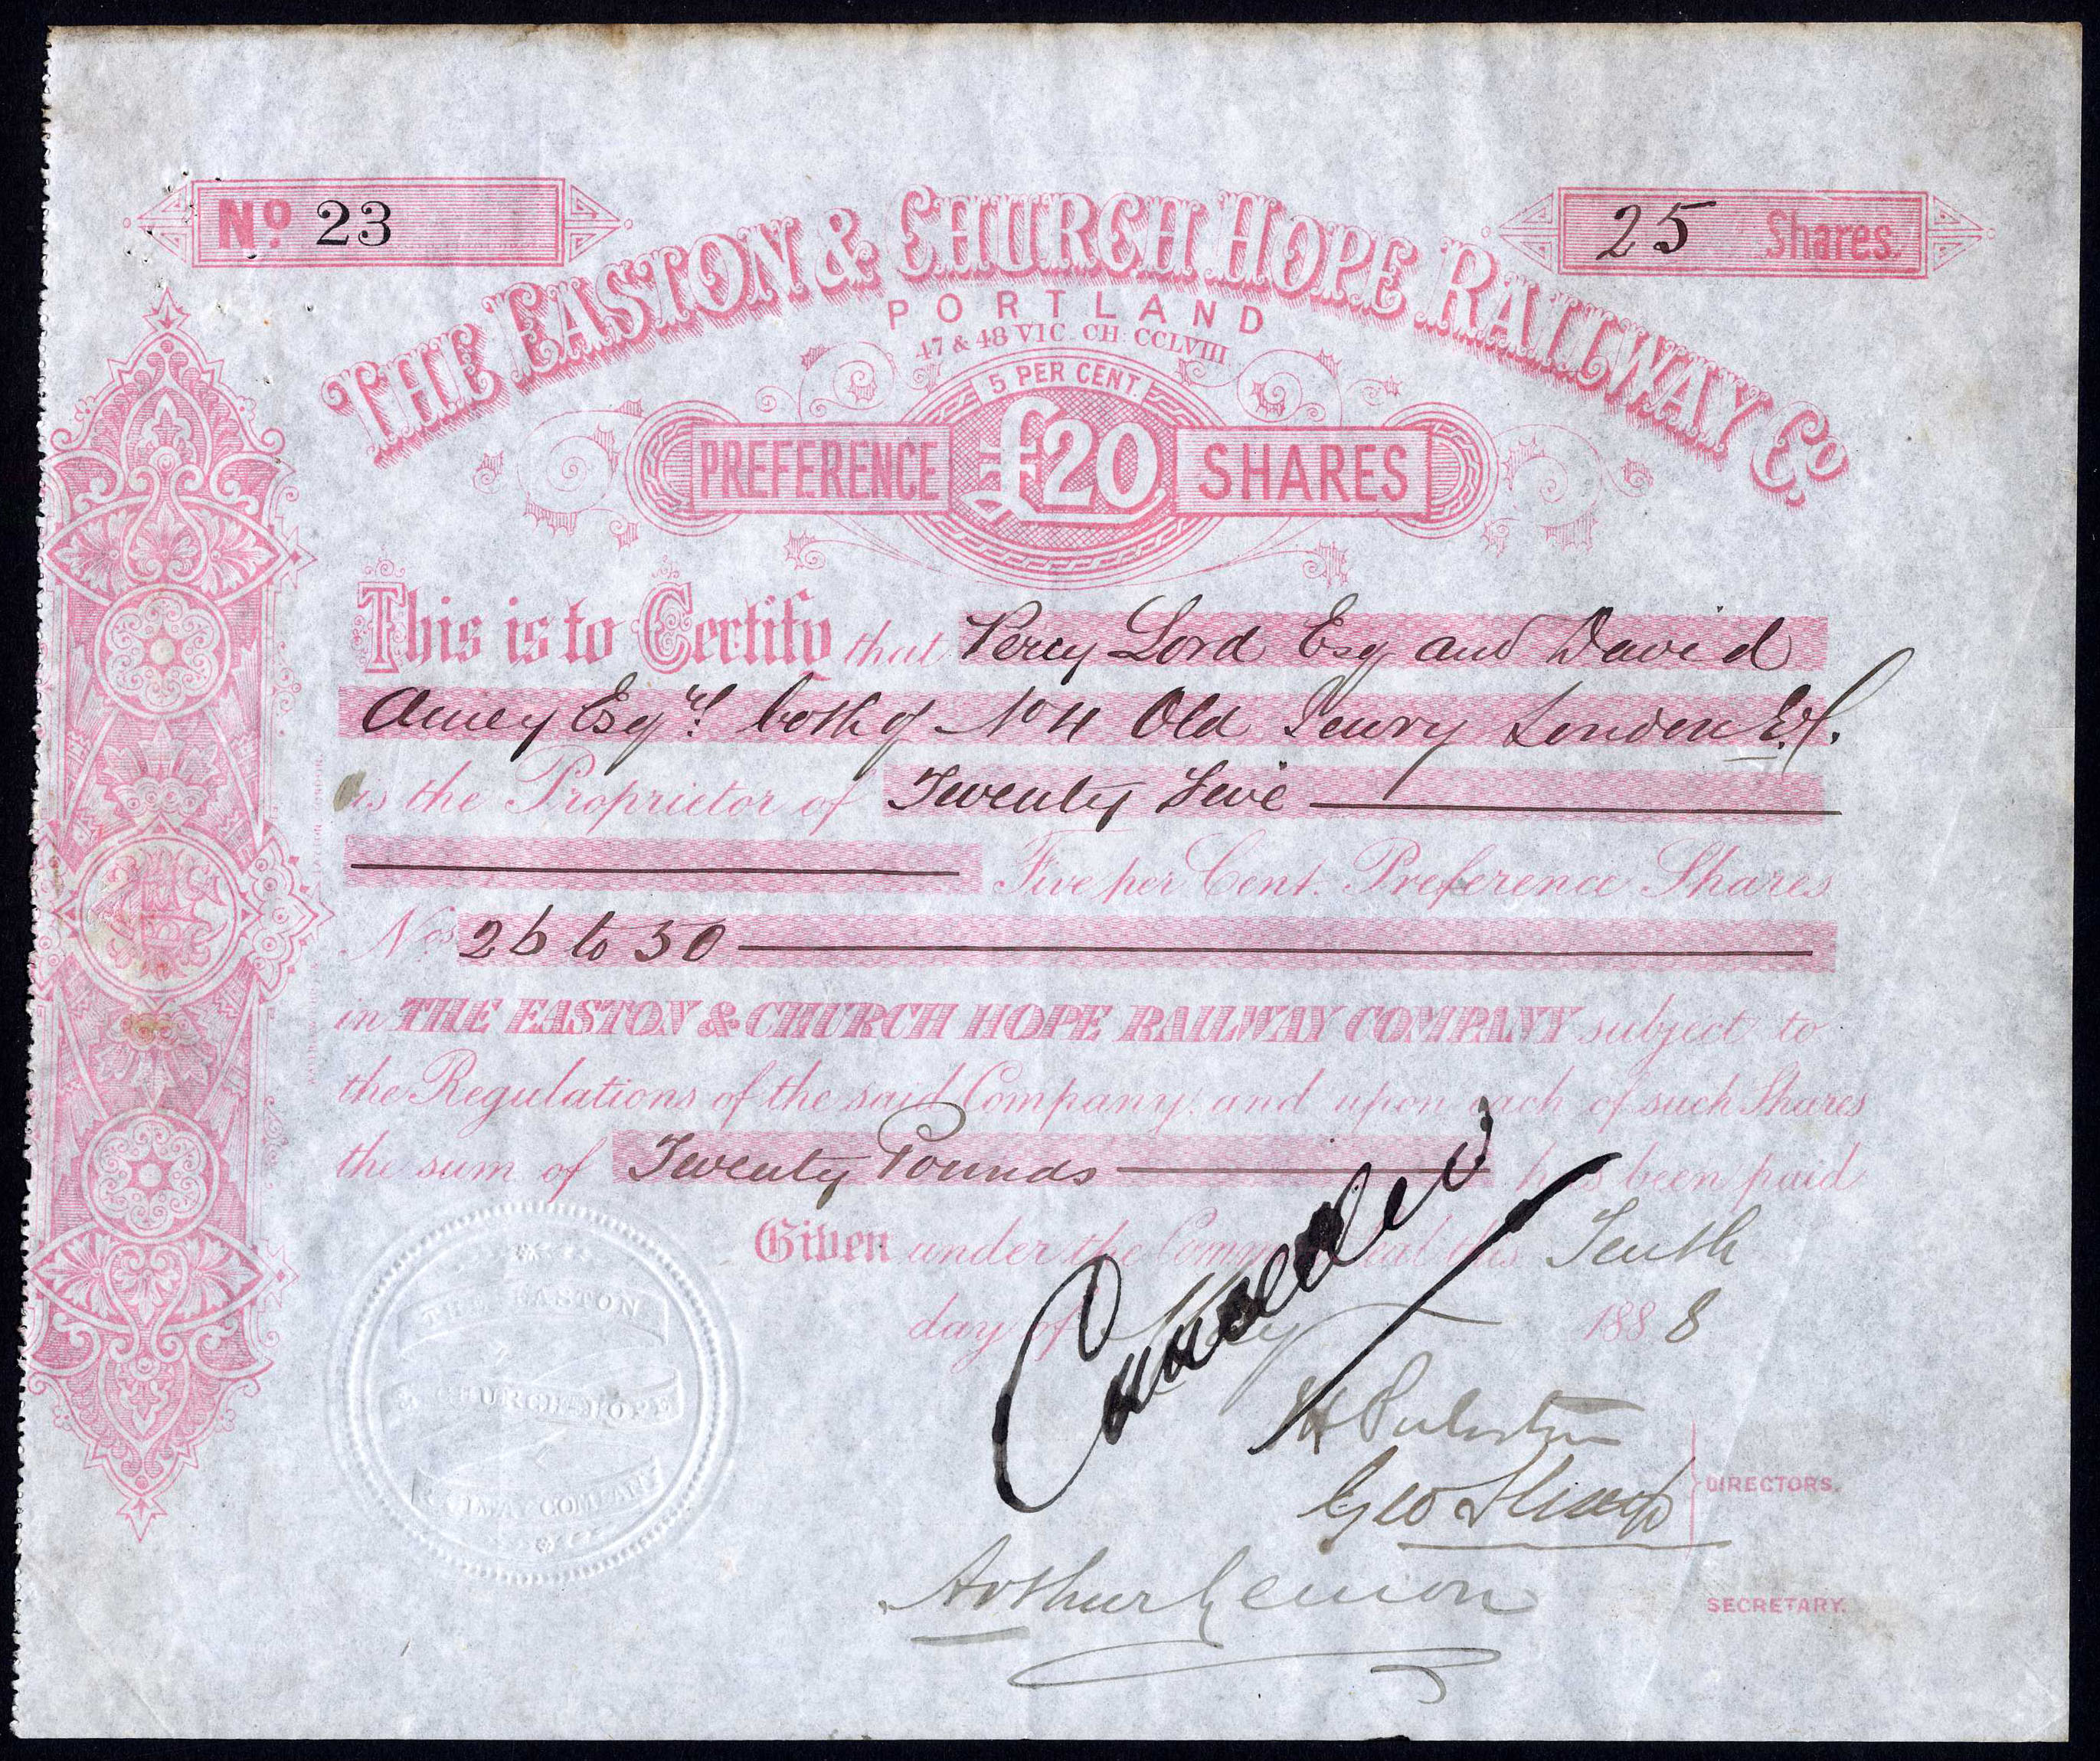 No. 23
25 Shares.
THE EASTON & CHURCH HOPE RAILWAY Co.
PORTLAND
47 & 48 VIC. CH. CCLVIII
5 PER CENT.
PREFERENCE £20 SHARES
This is to Certify that Percy Lord Esq and David
Amey Esqrs. both of No 4 Old Jewry London E.C.
is the Proprietor of Twenty five
Five per Cent. Preference Shares
Nos. 26 to 50
in THE EASTON & CHURCH HOPE RAILWAY COMPANY subject to
the Regulations of the said Company, and upon each of such Shares
the sum of Twenty Pounds has been paid
Given under the Common Seal this Tenth
day of May 1888
Cancelled
THE EASTON
& CHURCH HOPE
RAILWAY COMPANY
Geo Sharp
DIRECTORS.
Arthur Lemon
SECRETARY.